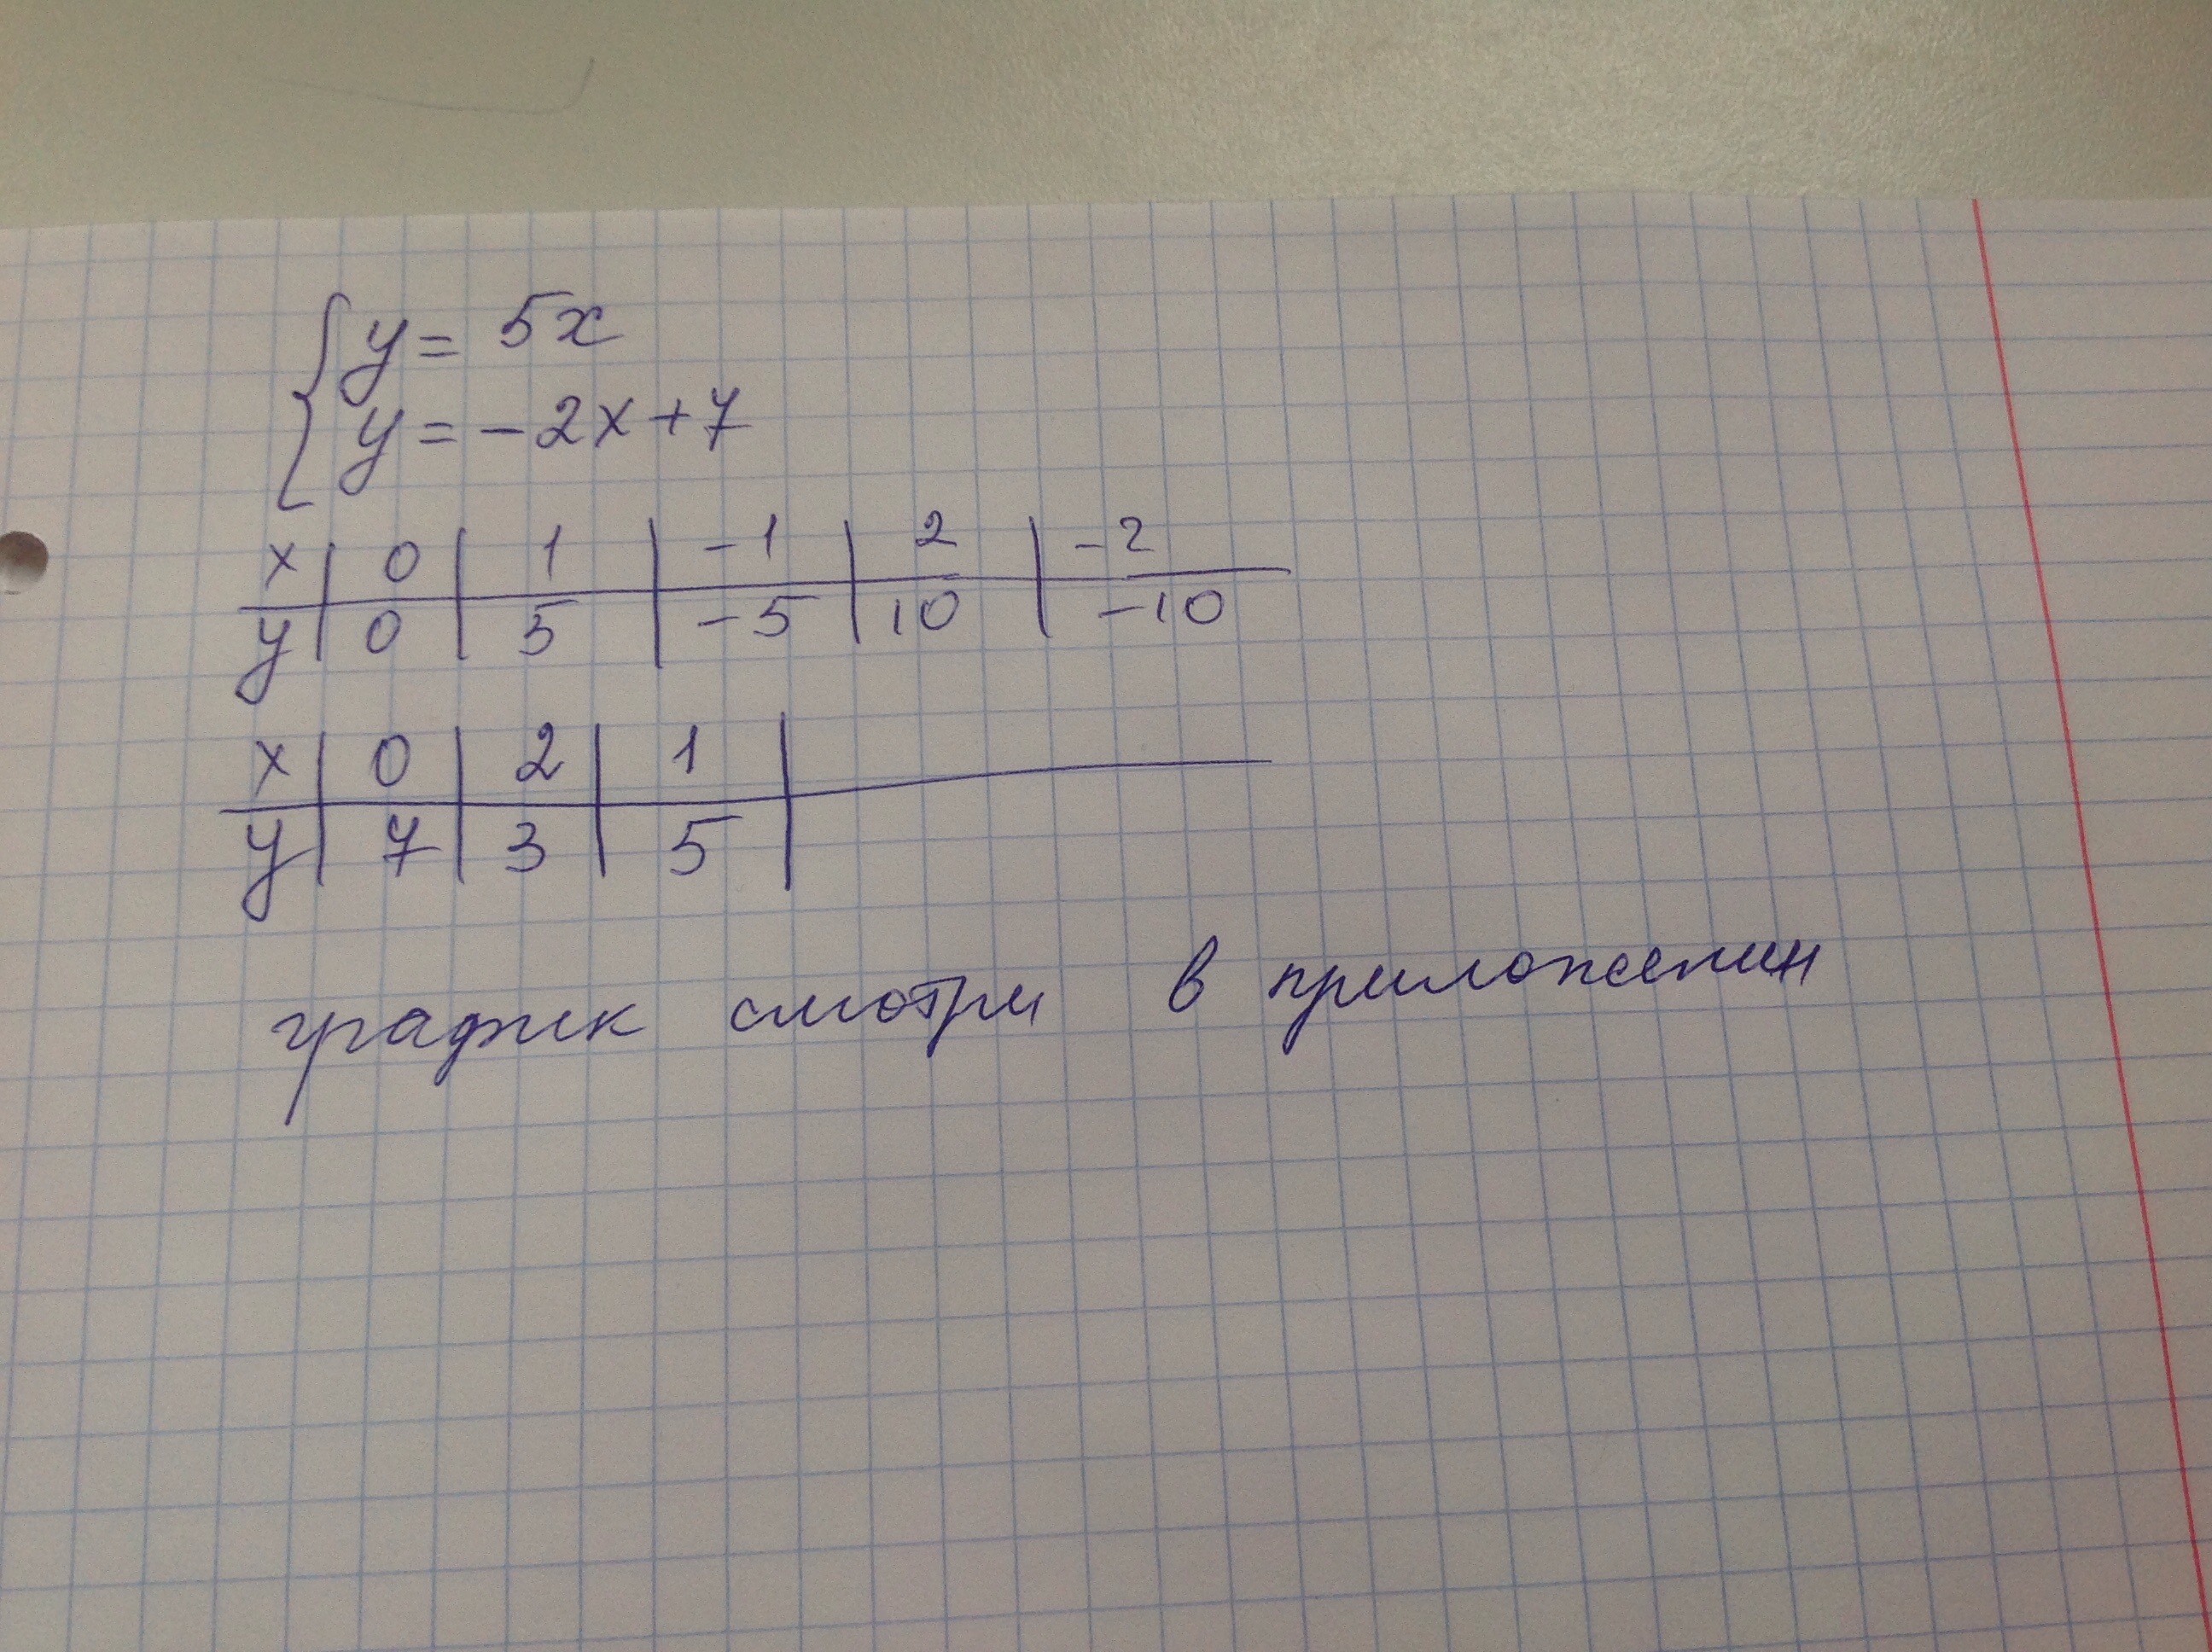 { y = 5x
y = -2x + 7
x | 0 | 1 | -1 | 2 | -2
y | 0 | 5 | -5 | 10 | -10
x | 0 | 2 | 1 |
y | 7 | 3 | 5 |
график смотри в приложении